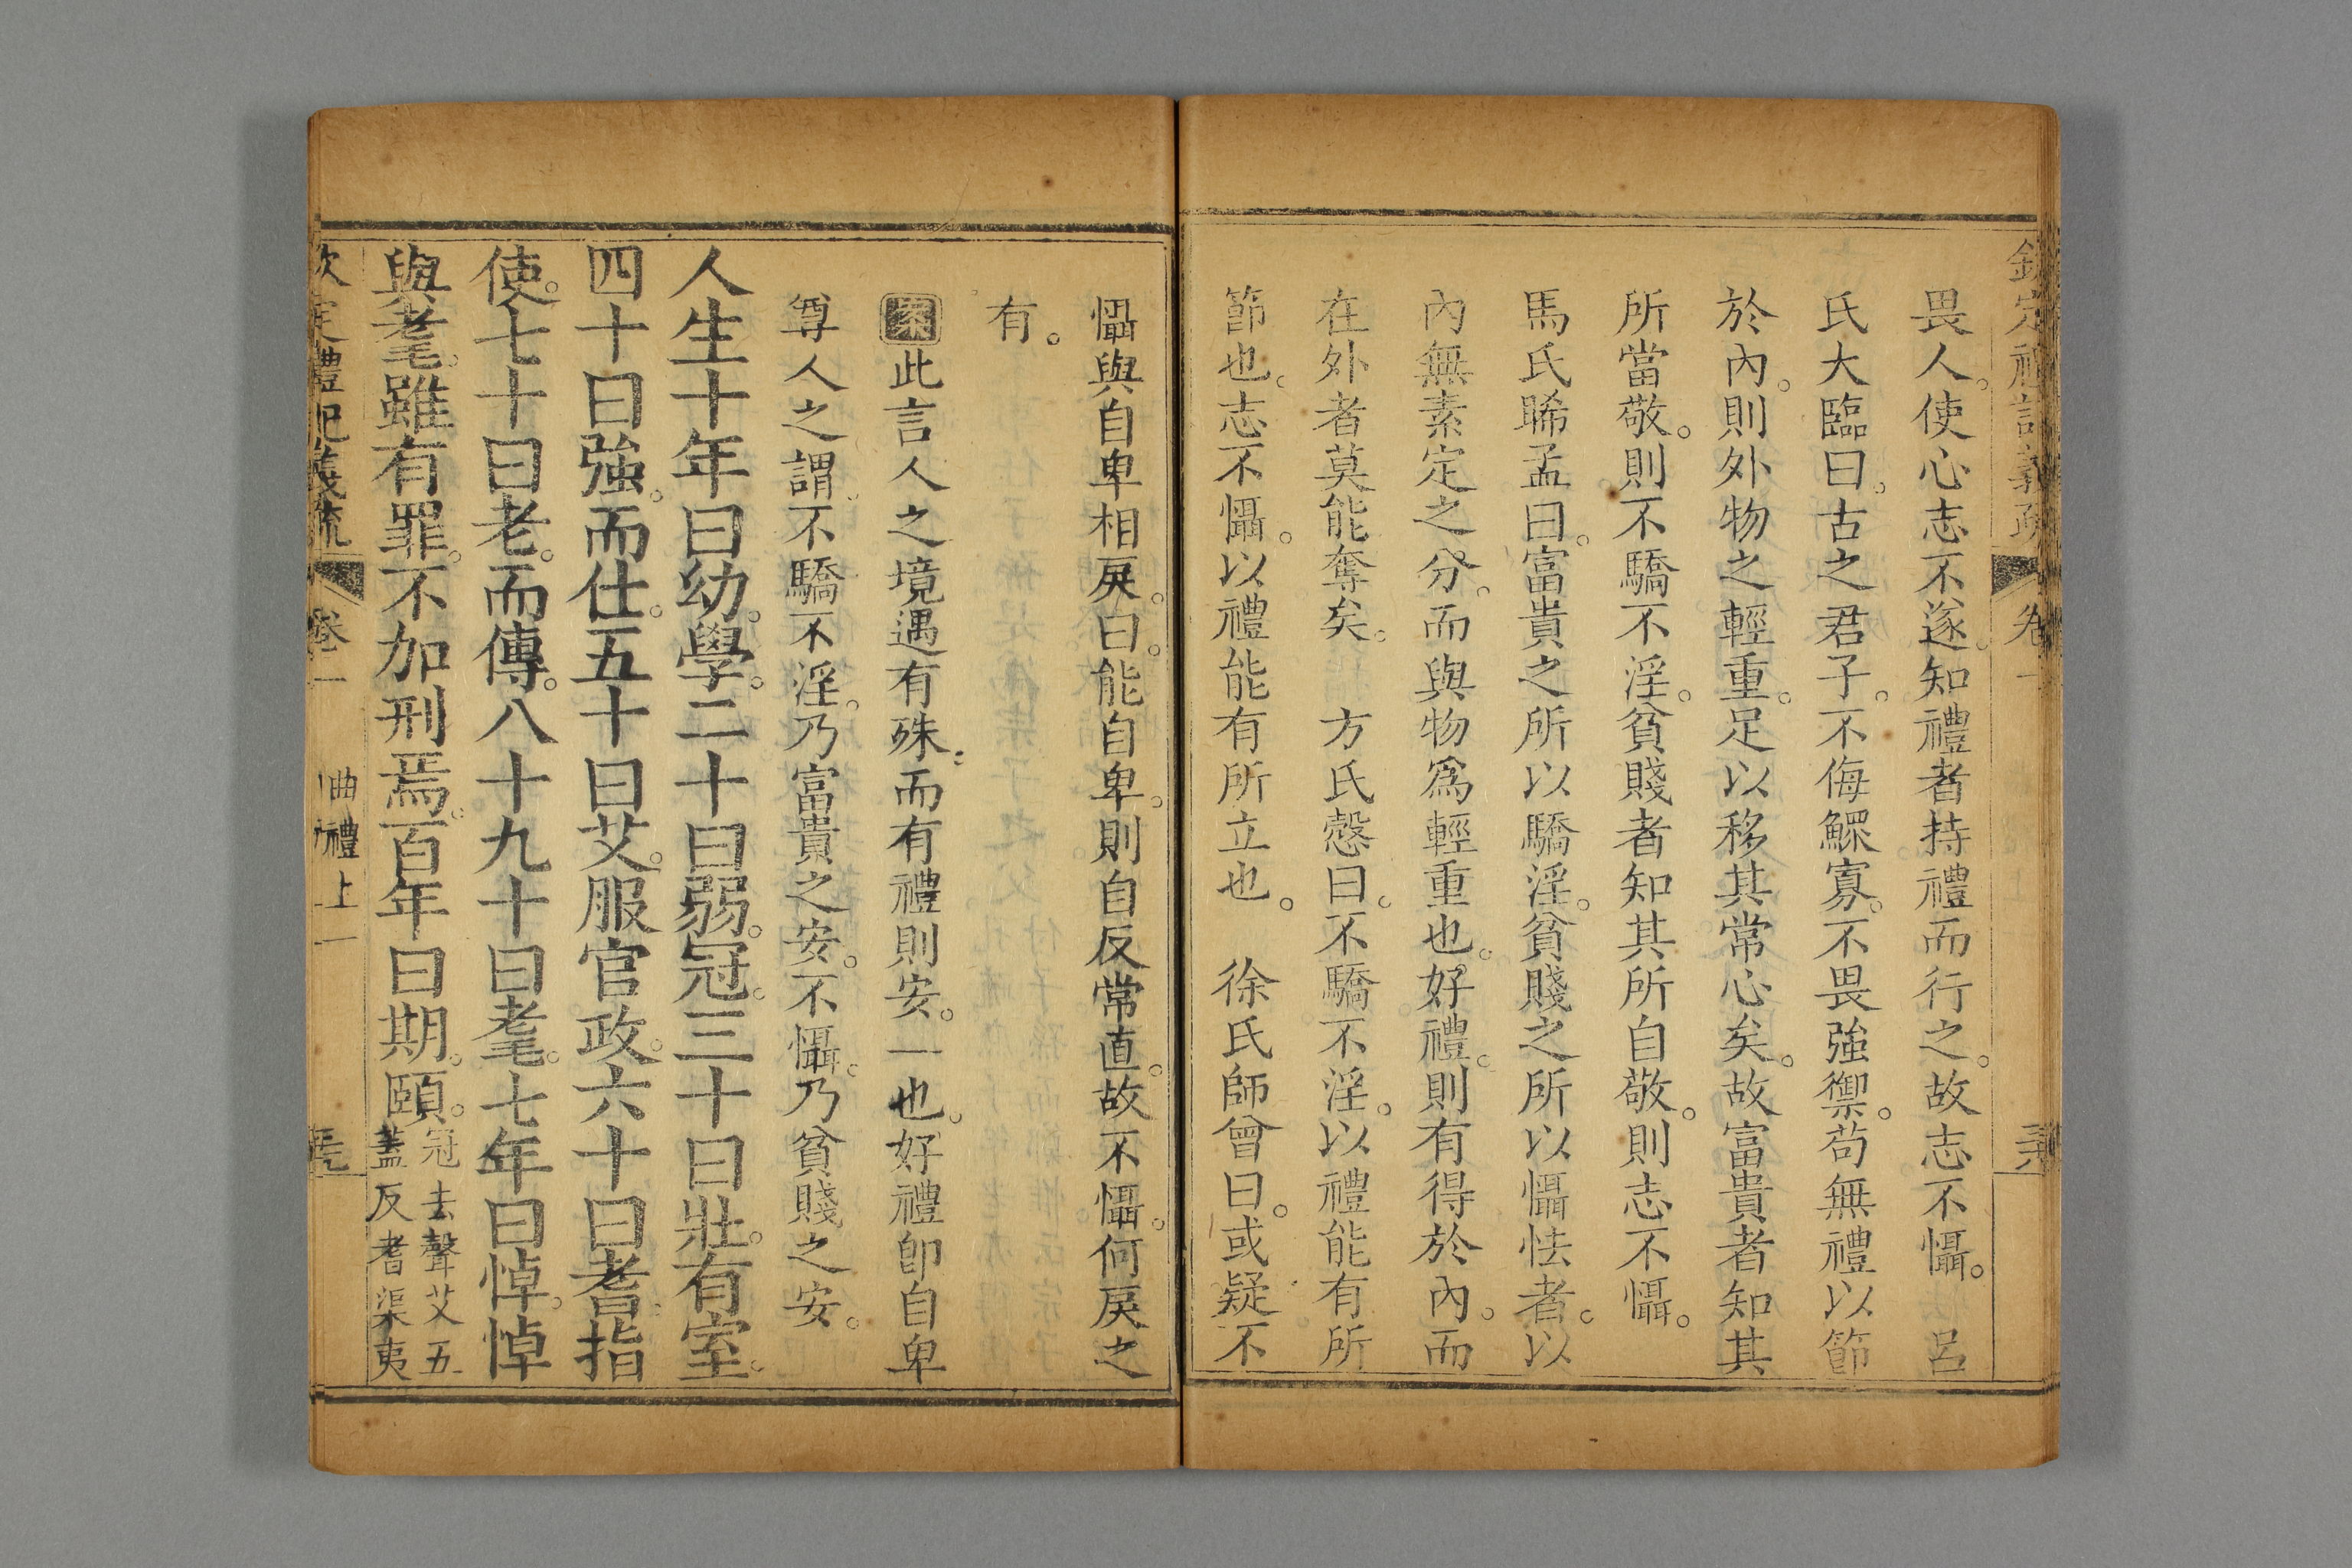 欽定禮記義疏 卷一
畏人。使心志不遂。知禮者持禮而行之。故志不懾。 呂
氏大臨曰。古之君子。不侮鰥寡。不畏強禦。苟無禮以節
於內。則外物之輕重。足以移其常心矣。故富貴者知其
所當敬。則不驕不淫。貧賤者知其所自敬。則志不懾。
馬氏晞孟曰。富貴之所以驕淫。貧賤之所以懾怯者。以
內無素定之分。而與物爲輕重也。好禮。則有得於內。而
在外者莫能奪矣。 方氏慤曰。不驕不淫。以禮能有所
節也。志不懾。以禮能有所立也。 徐氏師曾曰。或疑不
懾與自卑相戾。曰。能自卑。則自反常直。故不懾。何戾之
有。
案此言人之境遇有殊。而有禮則安。一也。好禮卽自卑
尊人之謂。不驕不淫。乃富貴之安。不懾。乃貧賤之安。
人生十年曰幼。學。二十曰弱。冠。三十曰壯。有室。
四十曰強。而仕。五十曰艾。服官政。六十曰耆。指
使。七十曰老。而傳。八十九十曰耄。七年曰悼。悼
與耄。雖有罪。不加刑焉。百年曰期。頤。冠去聲艾五
蓋反耆渠夷
欽定禮記義疏 卷一 曲禮上一